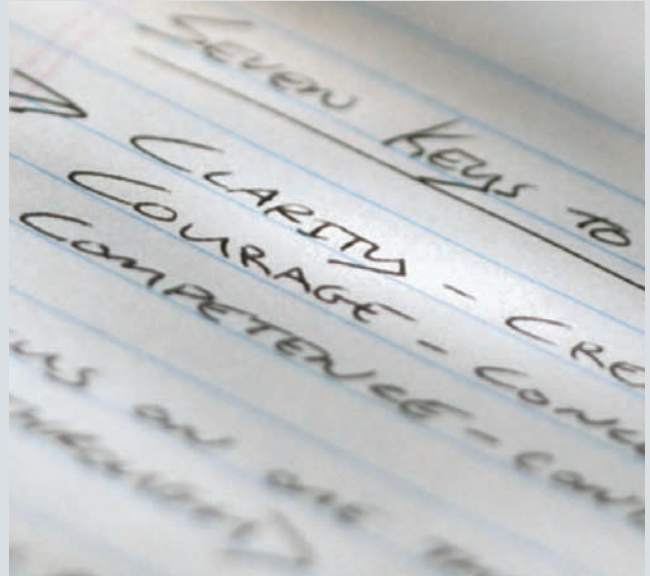 SEVEN KEYS TO
CLARITY - CRE
COURAGE - CONC
COMPETENCE - CON
US ON ONE TH
THROUGH